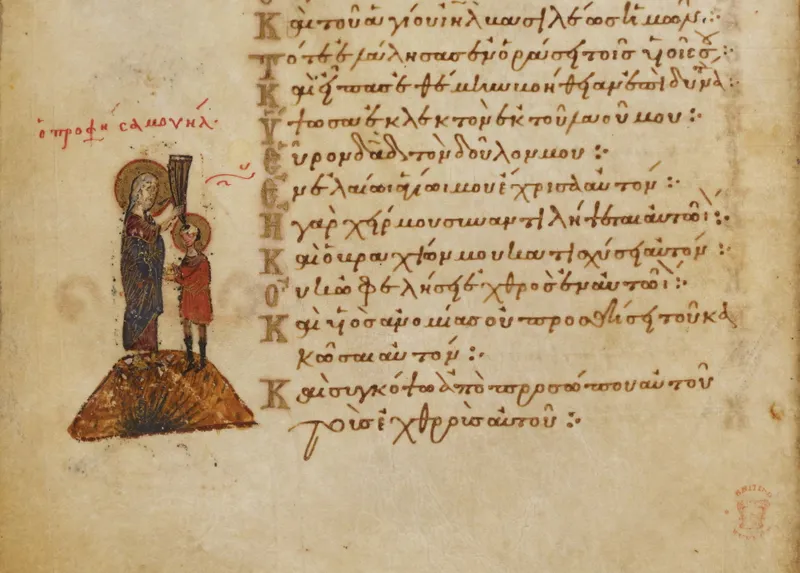 Καὶ τοῦ ἁγίου ιηλ βασιλέως ἡμῶν:
Τότε ἐλάλησας ἐν ὁράσει τοῖς υἱοῖς σου:
Καὶ εἶπας ἐθέμην βοήθειαν ἐπὶ δυνα
Ὕψωσα ἐκλεκτὸν ἐκ τοῦ λαοῦ μου:
Εὗρον δαδ τὸν δοῦλόν μου:
Ἐν ἐλαίω ἁγίω μου ἔχρισα αὐτόν:
Ἡ γὰρ χείρ μου συναντιλήψεται αὐτῶι:
Καὶ ὁ βραχίων μου κατισχύσει αὐτόν:
Οὐκ ὠφελήσει ἐχθρὸς ἐν αὐτῶι:
Καὶ υἱὸς ἀνομίας οὐ προσθήσει τοῦ κα
κῶσαι αὐτόν:
Καὶ συγκόψω ἀπὸ προσώπου αὐτοῦ
τοὺς ἐχθροὺς αὐτοῦ:
ὁ προφή σαμουήλ